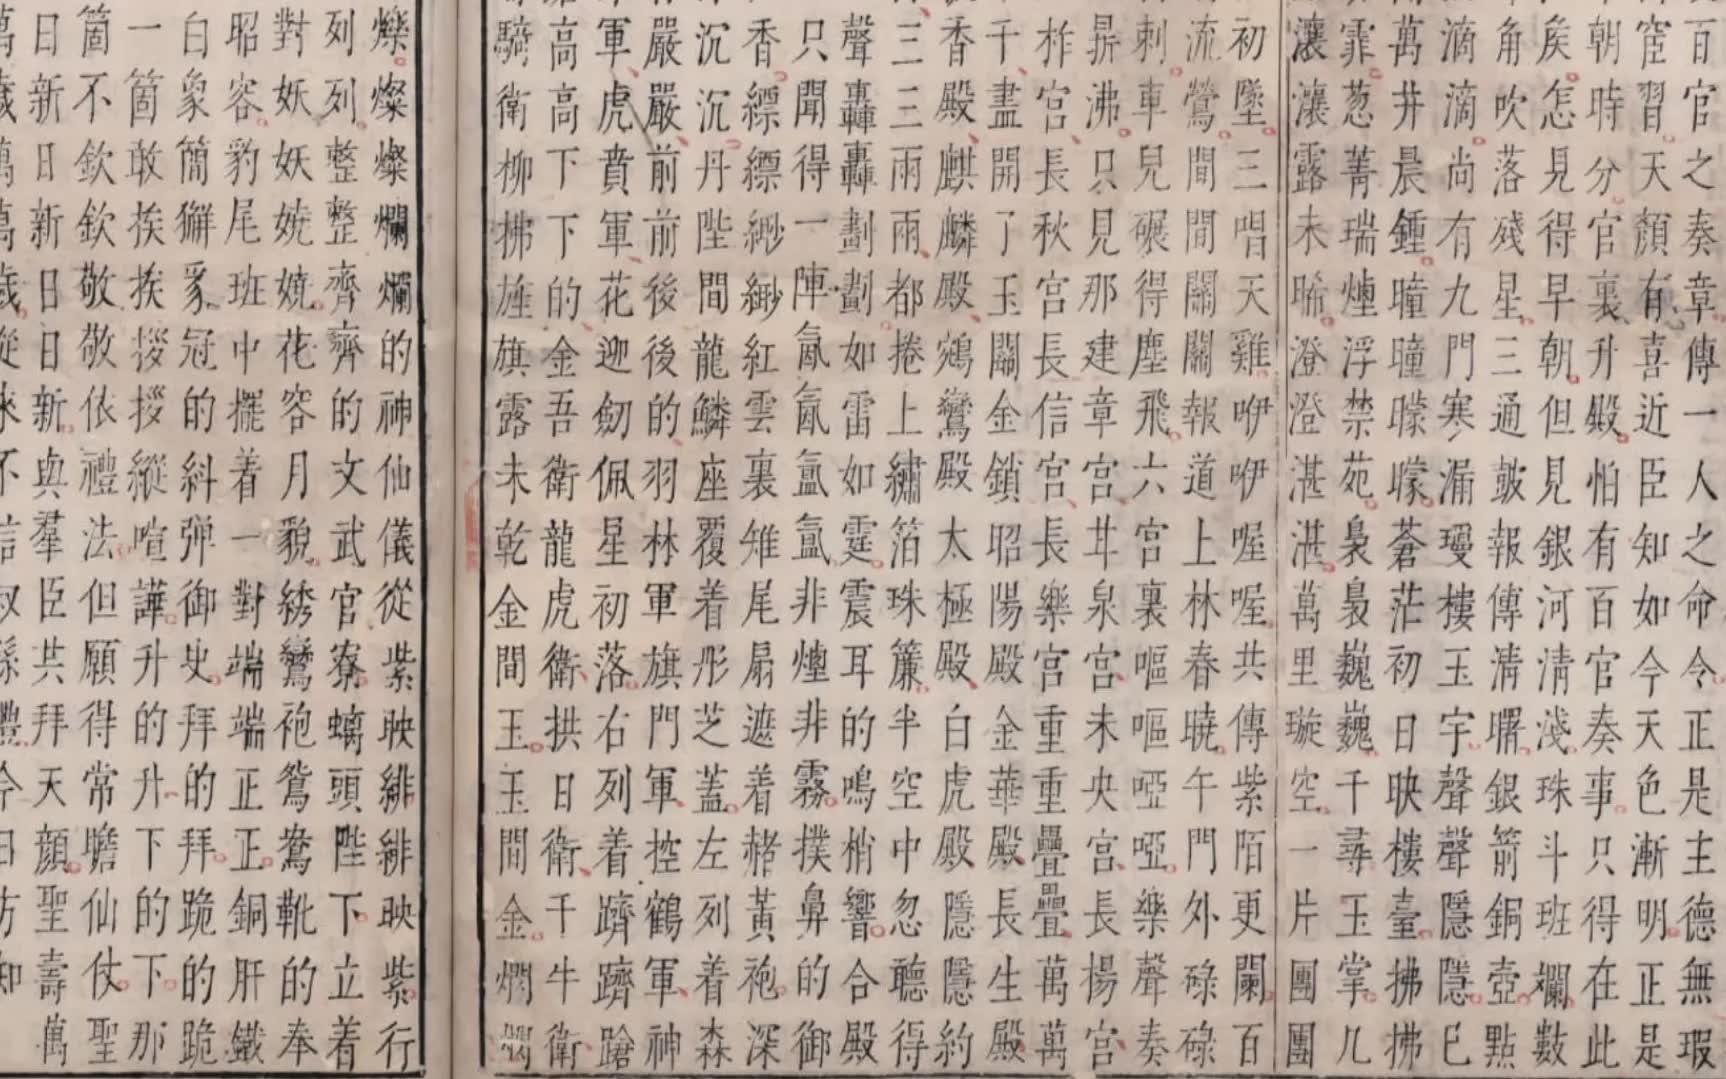 百官之奏章傳一人之命令正是主德無瑕
宦習天顏有喜近臣知如今天色漸明正是
朝時分官裏升殿怕有百官奏事只得在此
矦怎見得早朝但見銀河清淺珠斗班斕數
角吹落殘星三通皷報傳清曙銀箭銅壺點
滴滴尚有九門寒漏瓊樓玉宇聲聲隱隱已
萬井晨鍾曈曈曚曚蒼茫初日映樓臺拂拂
霏葱菁瑞煙浮禁苑裊裊巍巍千尋玉掌几
瀼瀼露未晞澄澄湛湛萬里璇空一片團團
初墜三唱天雞咿咿喔喔共傳紫陌更闌百
流鶯間間關關報道上林春曉午門外碌碌
剌車兒碾得塵飛六宮裏嘔嘔啞啞樂聲奏
鼎沸只見那建章宮甘泉宮未央宮長揚宮
柞宮長秋宮長信宮長樂宮重重疊疊萬萬
千盡開了玉關金鎖昭陽殿金華殿長生殿
香殿麒麟殿鵷鸞殿太極殿白虎殿隱隱約
三三雨雨都捲上繡箔珠簾半空中忽聽得
聲轟轟劃劃如雷如霆震耳的鳴梢響合殿
只聞得一陣氤氤氳氳非煙非霧撲鼻的御
香縹縹緲緲紅雲裏雉尾扇遮着赭黃袍深
沉沉丹陛間龍鱗座覆着彤芝蓋左列着森
嚴嚴前前後後的羽林軍旗門軍控鶴軍神
軍虎賁軍花迎劒佩星初落右列着躋躋蹌
高高下下的金吾衛龍虎衛拱日衛千牛衛
騎衛柳拂旌旗露未乾金間玉玉間金燗燗
燦燦燦爛爛的神仙儀從紫映緋緋映紫行
列列整整齊齊的文武官寮螭頭陛下立着
對妖妖嬈嬈花容月貌綉鸞袍鴛鴦靴的奉
昭容豹尾班中擺着一對端端正正銅肝鐵
白象簡獬豸冠的糾弹御史拜的拜跪的跪
一箇敢挨挨拶拶縱喧譁升的升下的下那
箇不欽欽敬敬依禮法但願得常瞻仙仗聖
日新日新日日新與羣臣共拜天顏聖壽萬
萬歲萬萬歲從來不信叔孫禮今日方知